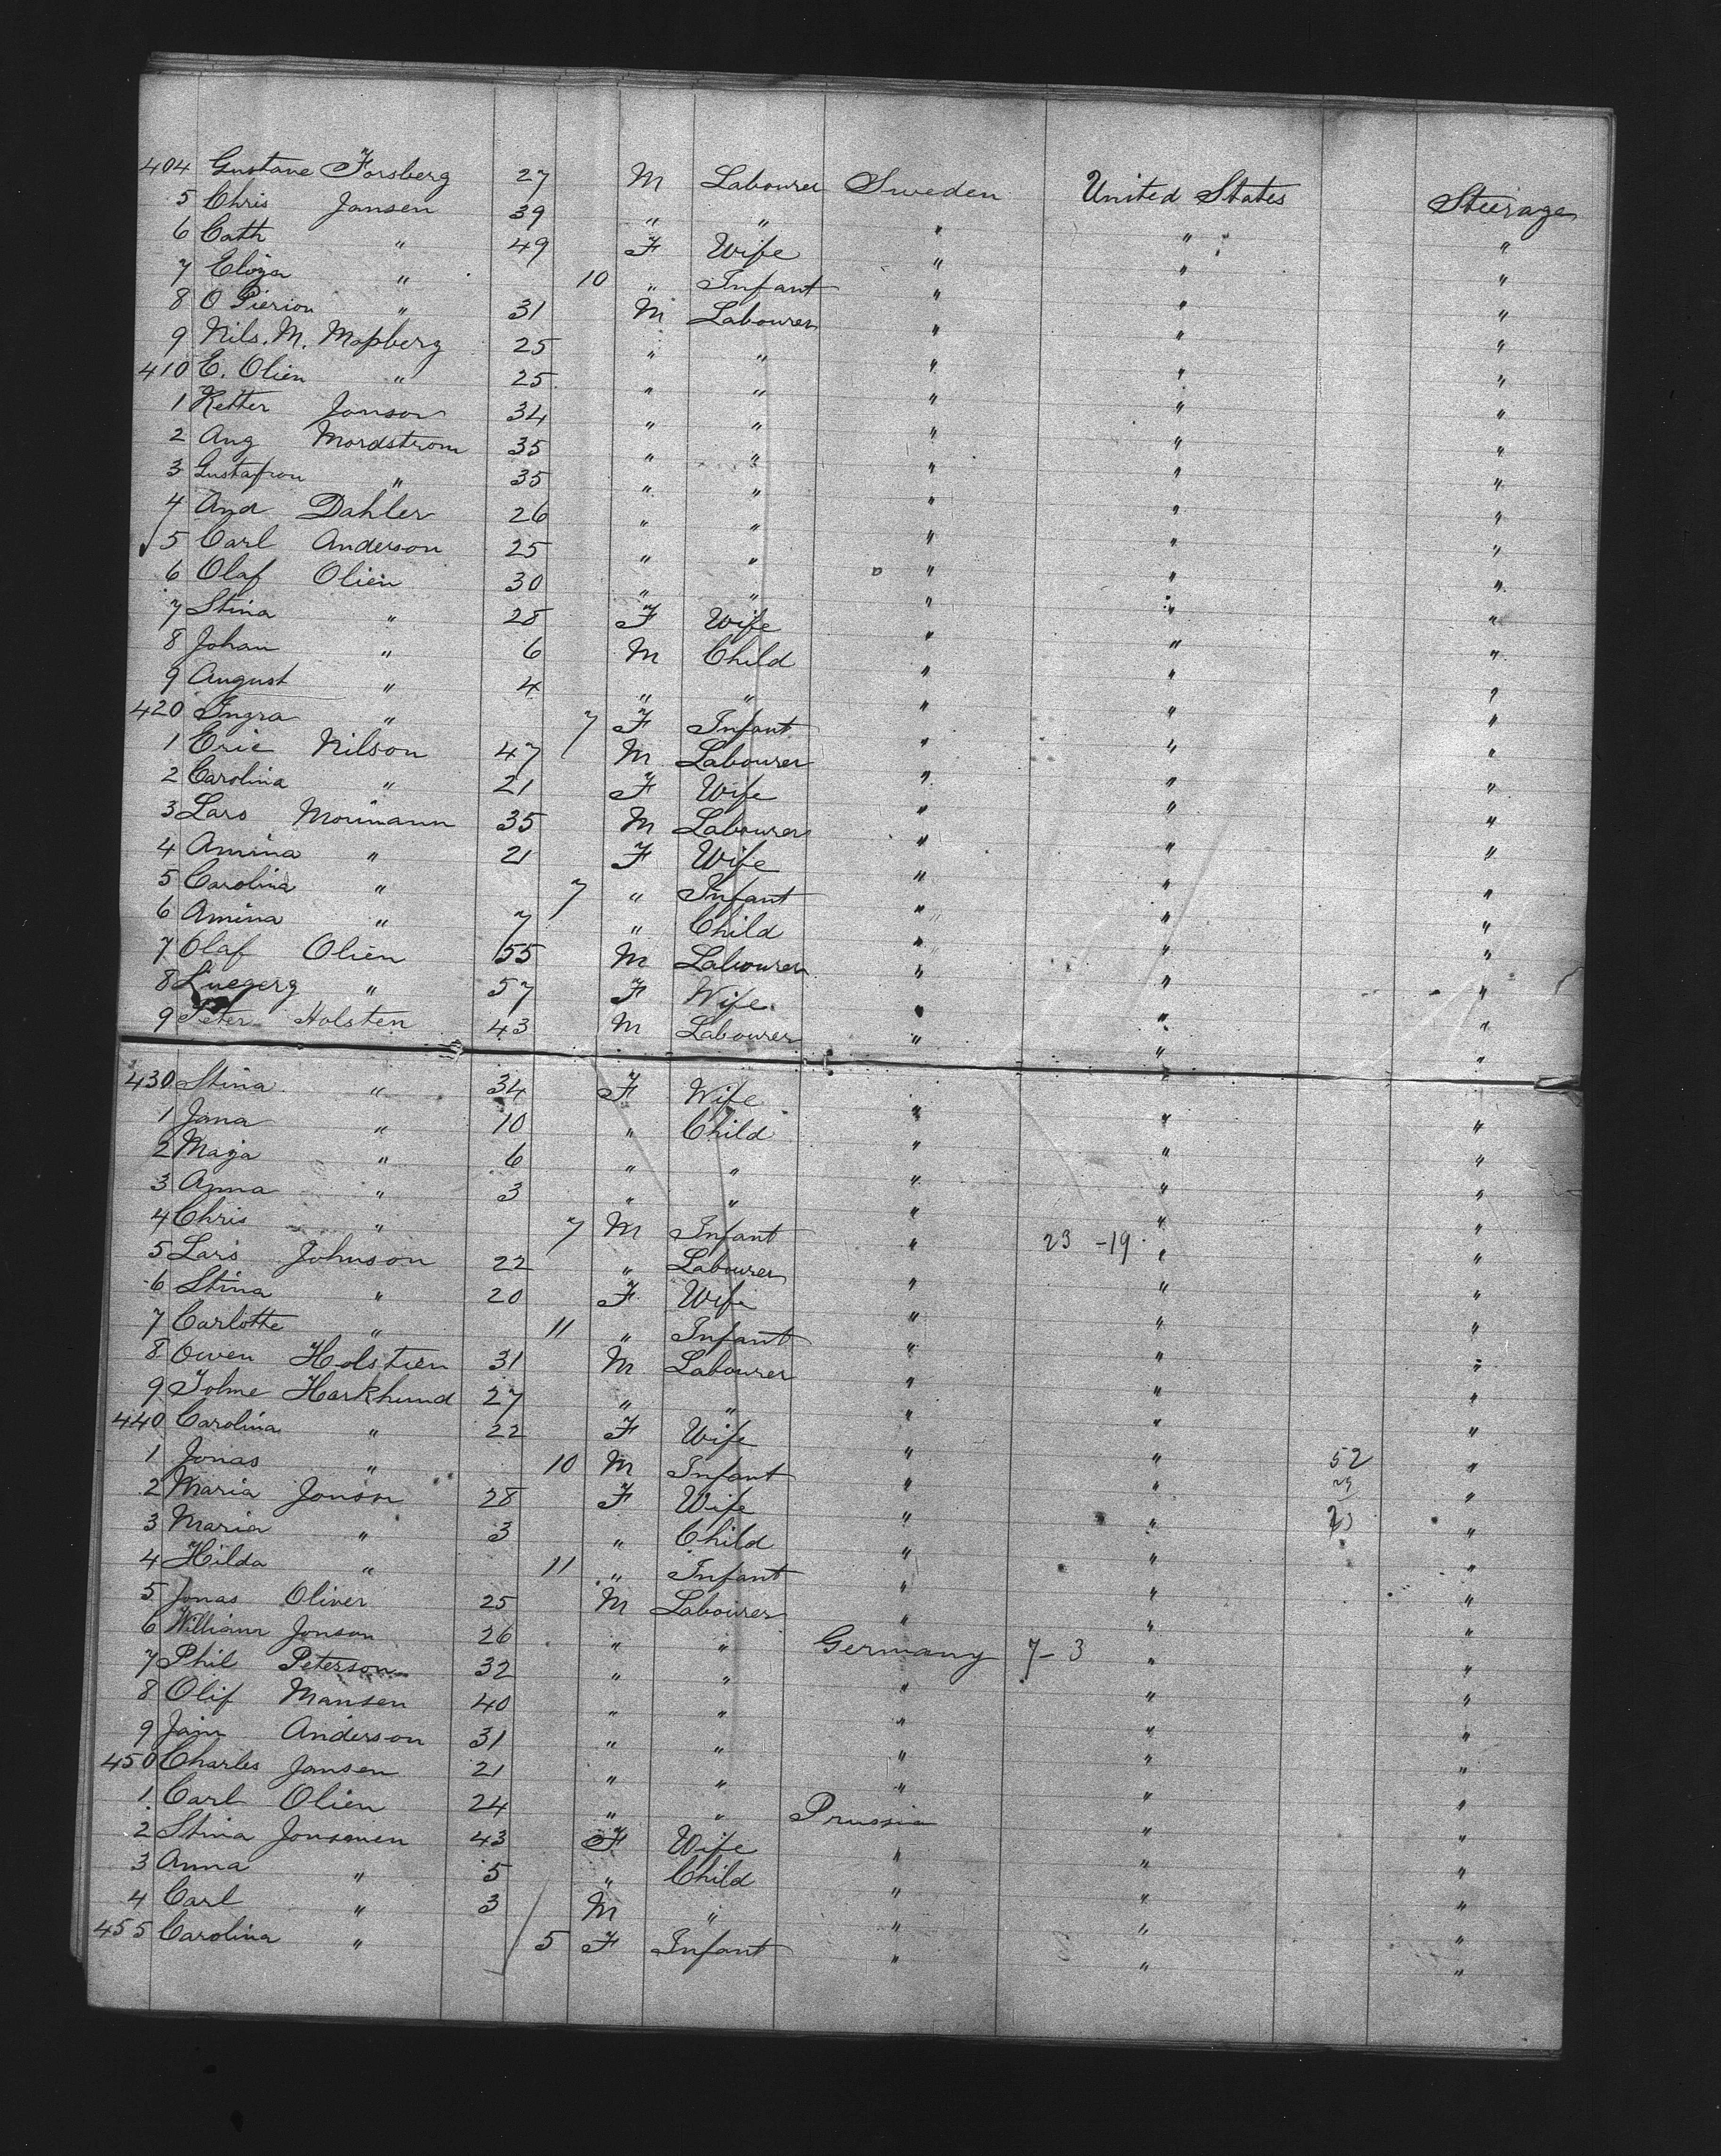 404 Gustave Forsberg 27 M Labourer Sweden United States Steerage
5 Chris Jansen 39 " " " " "
6 Cath " 49 F Wife " " "
7 Eloza " 10 " Infant " " "
8 O Pierion " 31 M Labourer " " "
9 Nils. M. Mopberg 25 " " " " "
410 E. Olien " 25 " " " " "
1 Ketter Jonson 34 " " " " "
2 Aug Mordstrom 35 " " " " "
3 Gustafson " 35 " " " " "
4 And Dahler 26 " " " " "
5 Carl Anderson 25 " " " " "
6 Olaf Olien 30 " " " " "
7 Stina " 28 F Wife " " "
8 Johan " 6 M Child " " "
9 August " 4 " " " " "
420 Ingra " 7 F Infant " " "
1 Eric Nilson 47 M Labourer " " "
2 Carolina " 21 F Wife " " "
3 Lars Morimann 35 M Labourer " " "
4 Amina " 21 F Wife " " "
5 Carolina " 7 " Infant " " "
6 Amina " 7 " Child " " "
7 Olaf Olien 55 M Labourer " " "
8 Luegerg " 57 F Wife " " "
9 Peter Holsten 43 M Labourer " " "
430 Stina " 34 F Wife " " "
1 Jana " 10 " Child " " "
2 Maja " 6 " " " " "
3 Anna " 3 " " " " "
4 Chris " 7 M Infant " 23 -19 " "
5 Lars Johnson 22 " Labourer " " "
6 Stina " 20 F Wife " " "
7 Carlotte " 11 " Infant " " "
8 Owen Holstien 31 M Labourer " " "
9 Tolme Harkhund 27 " " " " "
440 Carolina " 22 F Wife " " "
1 Jonas " 10 M Infant " " 52 "
2 Maria Jonson 28 F Wife " " "
3 Maria " 3 " Child " " "
4 Hilda " 11 " Infant " " "
5 Jonas Oliver 25 M Labourer " " "
6 William Jonson 26 " " Germany 7-3 " "
7 Phil Peterson 32 " " " " "
8 Olif Mansen 40 " " " " "
9 Jam Anderson 31 " " " " "
450 Charles Jansen 21 " " " " "
1 Carl Olien 24 " " Prussia " "
2 Stina Jonsonen 43 F Wife " " "
3 Anna " 5 " Child " " "
4 Carl " 3 M " " " "
455 Carolina " 5 F Infant " " "